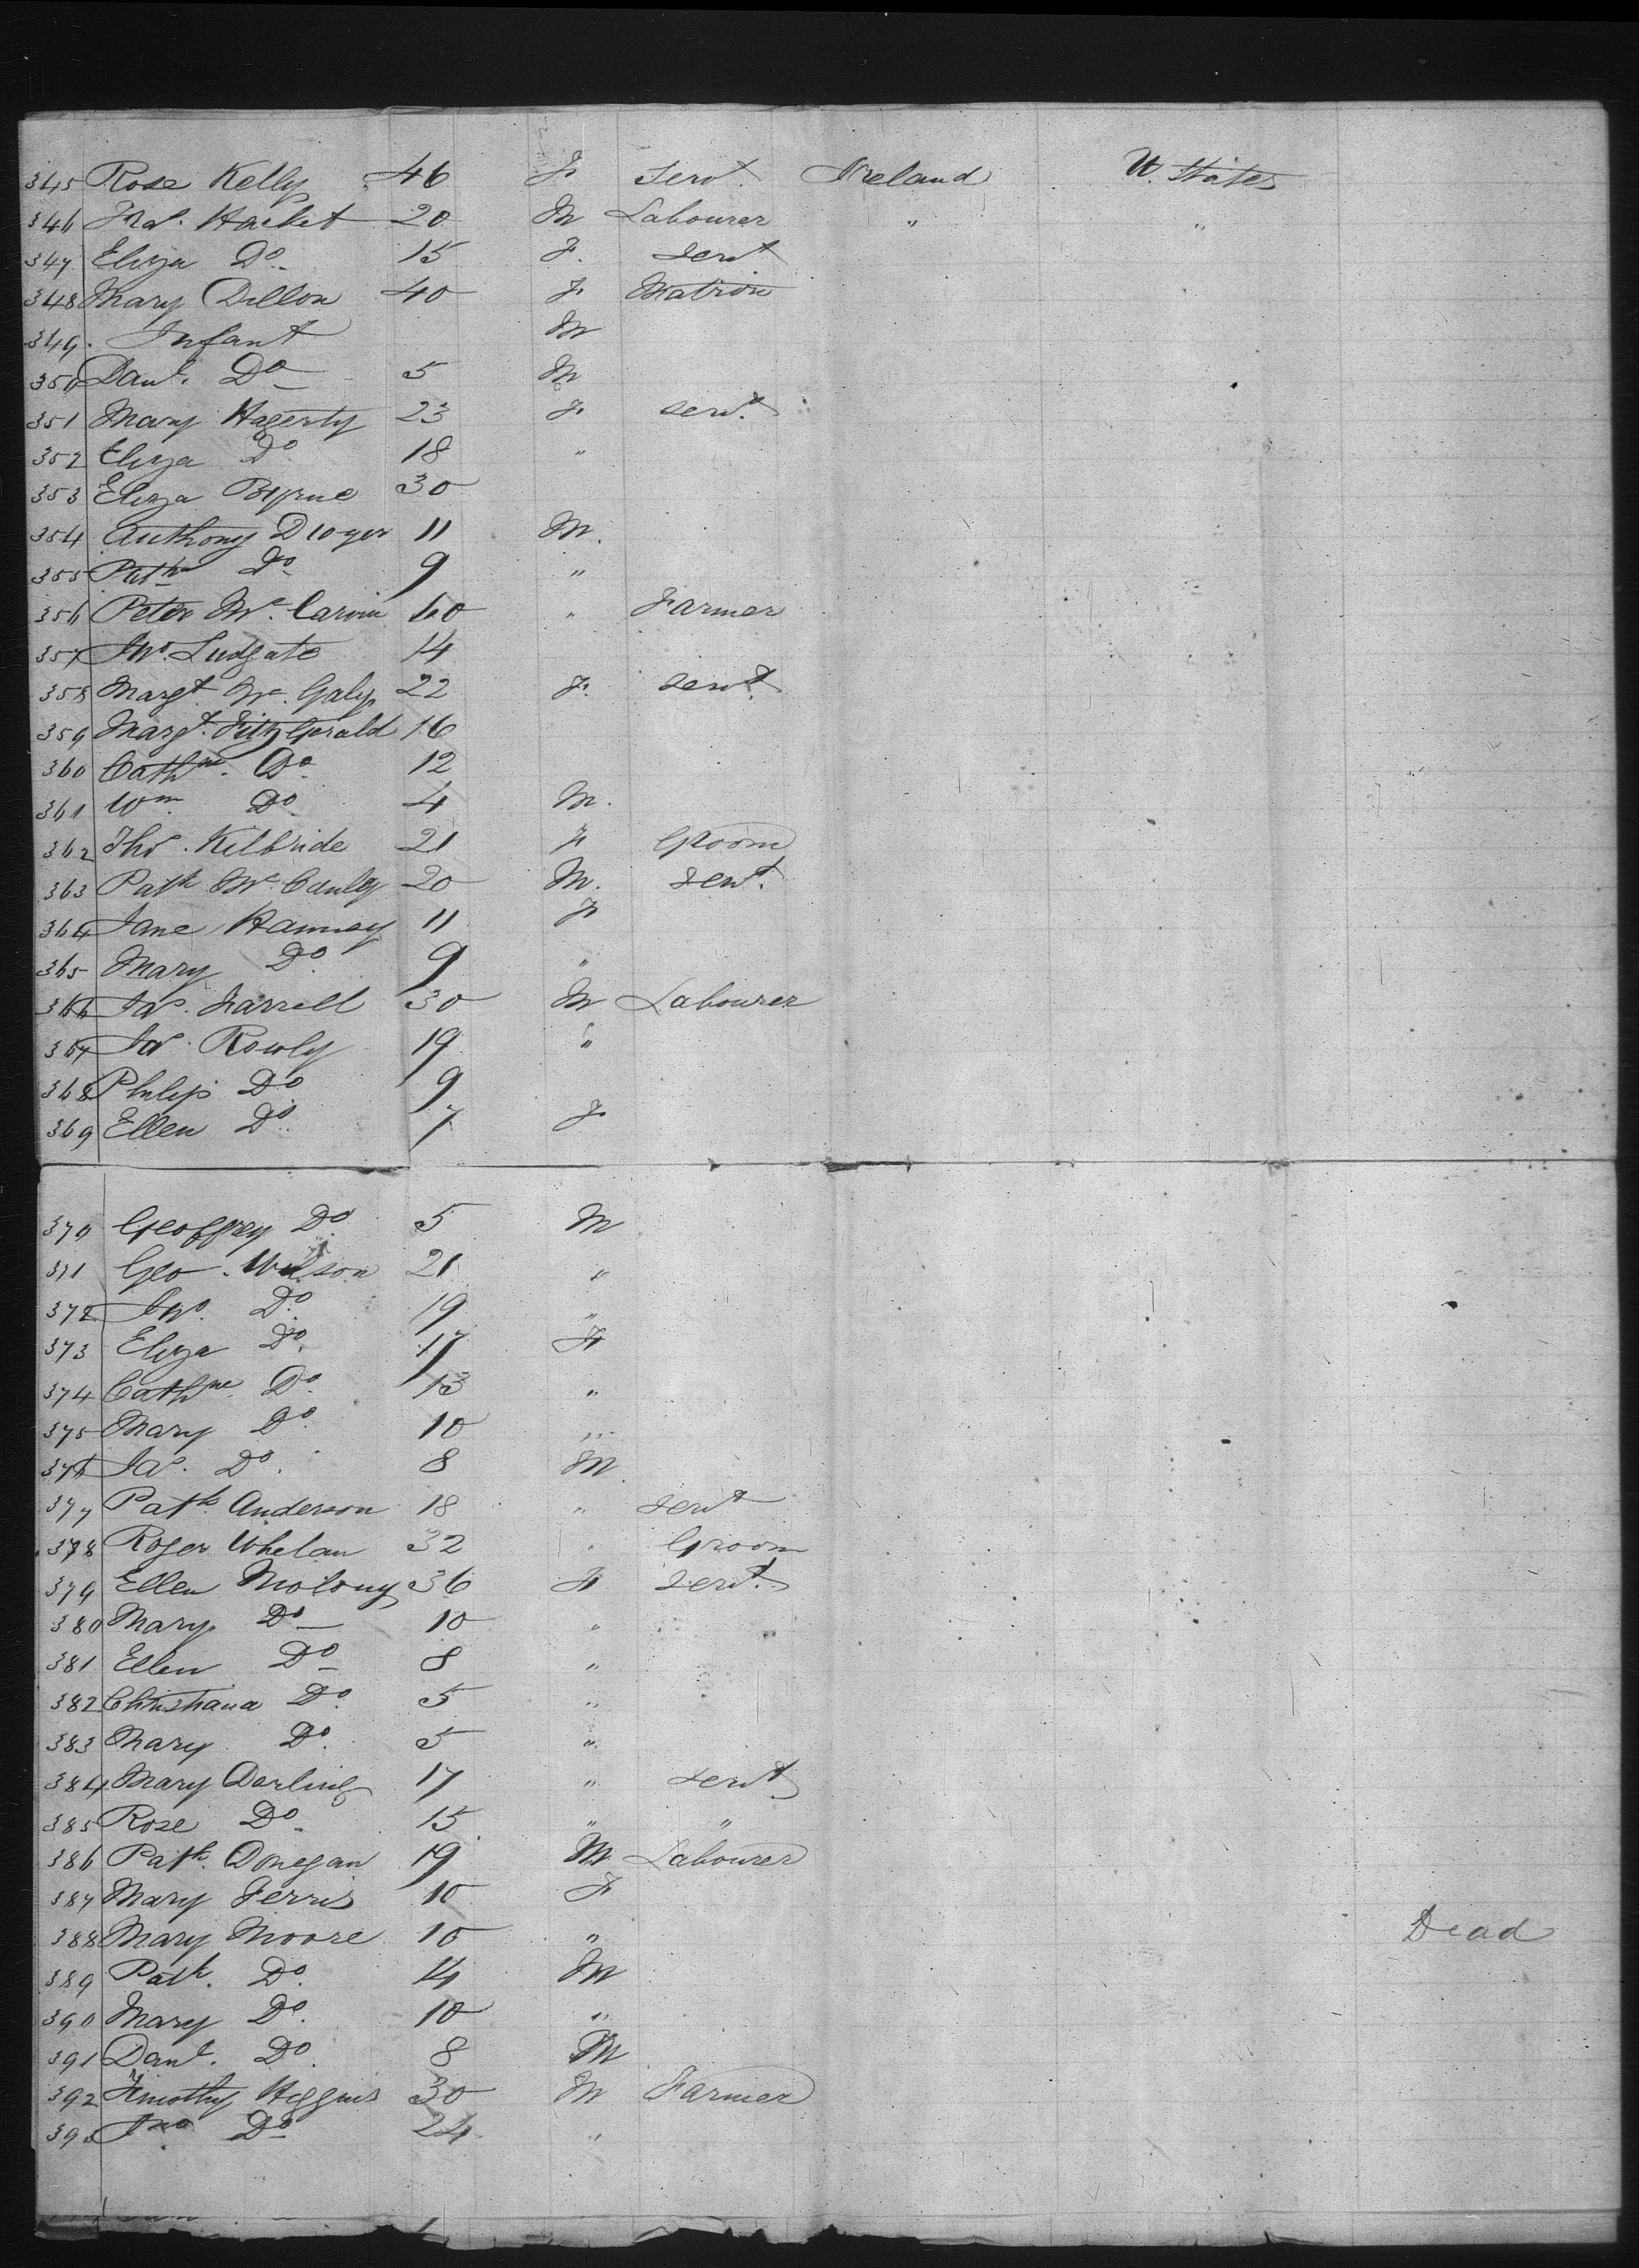 345 Rose Kelly 46 F Servt. Ireland U. States
346 Thos. Hacket 20 M Labourer " "
347 Eliza Do. 15 F. Servt
348 Mary Dillon 40 F Matron
349. Infant M
350 Danl. Do 5 M
351 Mary Hagerty 23 F servt.
352 Eliza Do 18 "
353 Eliza Byrne 30
354 Anthony 11 M.
355 Patk Do 9 "
356 Peter Mc. 60 " Farmer
357 Jno. Ludgate 14
358 Margt. Mc. 22 F. servt.
359 Margt. FitzGerald 16
360 Cathne. Do 12
361 Wm. Do 4 M.
362 Thos. Kilbride 21 F Groom
363 Patk Mc. Cauley 20 M. servt.
364 Jane 11 F
365 Mary Do. 9 "
366 Jas. Farrell 30 M Labourer
367 Jas. Rowly 19 "
368 Philip Do 9
369 Ellen Do. 7 F
370 Geoffrey Do. 5 M
371 Geo. Wilson 21 "
372 Jno. Do. 19 "
373 Eliza Do. 17 F
374 Cathne. Do. 13 "
375 Mary Do. 10 "
376 Jas. Do. 8 M
377 Patk. Anderson 18 " servt
378 Roger Whelan 32 " Groom
379 Ellen Molony 36 F servt.
380 Mary Do 10 "
381 Ellen Do 8 "
382 Christiana Do. 5 "
383 Mary Do. 5 "
384 Mary Darling 17 " servt
385 Rose Do. 15 " "
386 Patk. Donegan 19 M Labourer
387 Mary Ferris 10 F
388 Mary Moore 10 " Dead
389 Patk. Do. 14 M
390 Mary Do. 10 "
391 Danl. Do. 8 M
392 Timothy Higgins 30 M Farmer
393 Jno Do 24 "